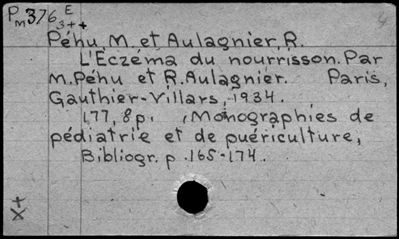 P M 376 E
3++
Péhu, M. et Aulagnier, R.
L'Eczéma du nourrisson. Par
M. Péhu et R. Aulagnier. Paris,
Gauthier-Villars, 1934.
177, 8 p. (Monographies de
pédiatrie et de puériculture,
Bibliogr. p. 165-174.